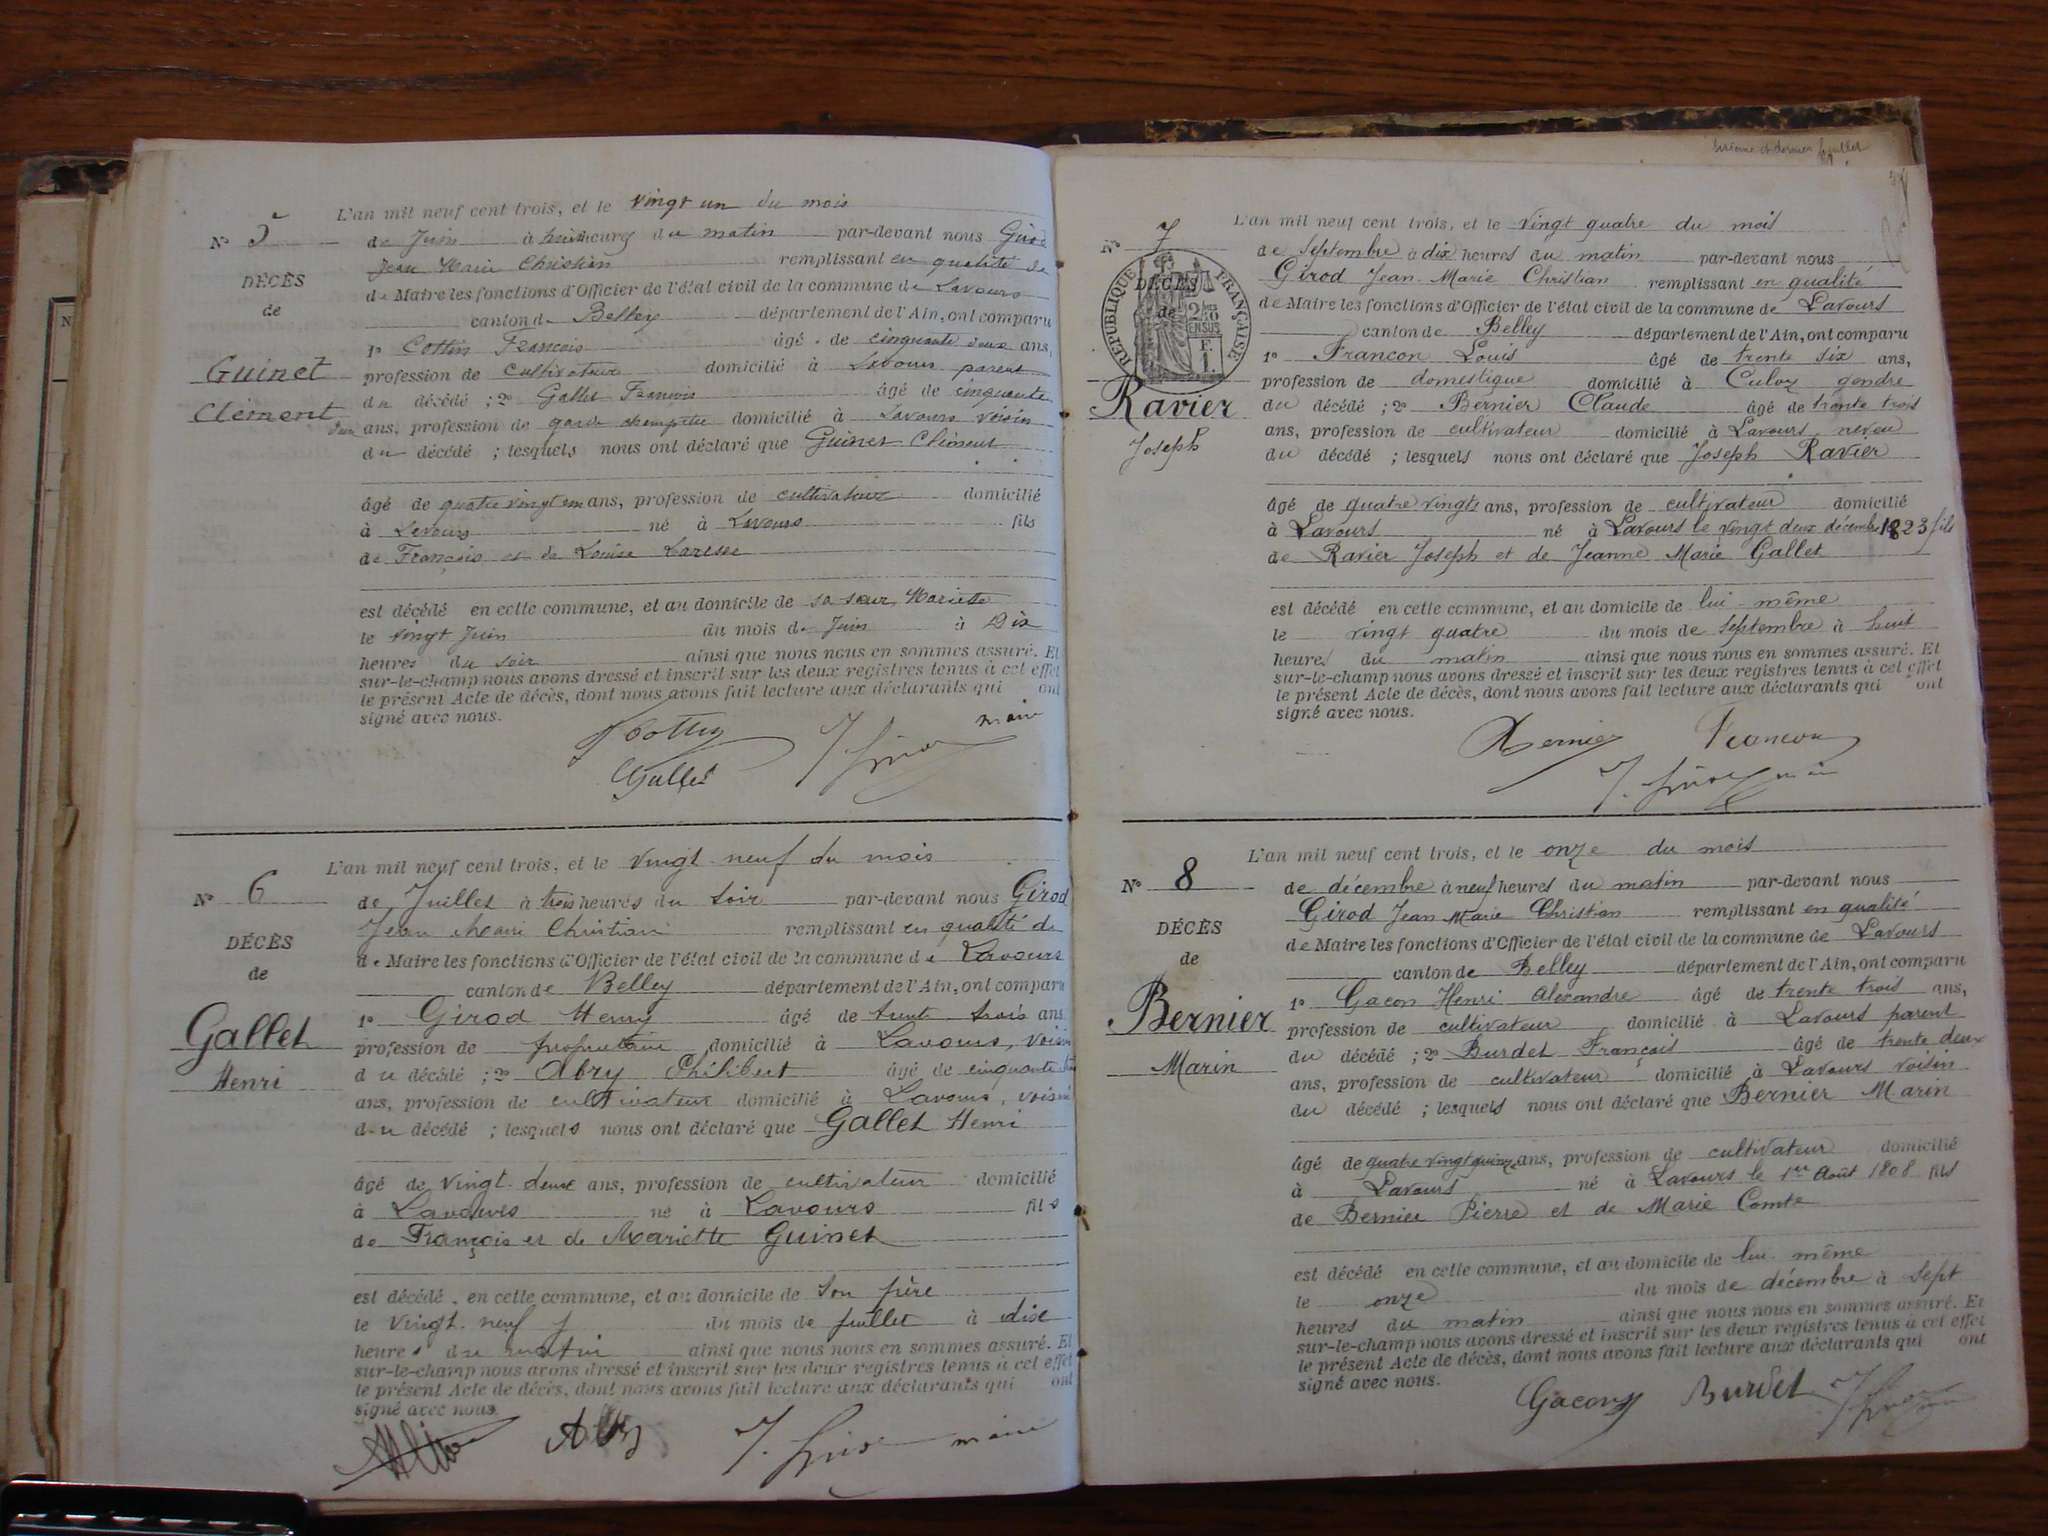 L'an mil neuf cent trois, et le vingt un du mois
N° 5 de Juin à huit heures du matin par-devant nous Girod
Jean Marie Christian remplissant en qualité de
DÉCÈS
de Maire les fonctions d'Officier de l'état civil de la commune de Lavours
de
canton de Belley département de l'Ain, ont comparu
1° Cottin François âgé de cinquante deux ans,
Guinet
profession de cultivateur domicilié à Lavours parent
du décédé ; 2° Gallet François âgé de cinquante
Clément
ans, profession de garde champêtre domicilié à Lavours voisin
du décédé ; lesquels nous ont déclaré que Guinet Clément
âgé de quatre vingt un ans, profession de cultivateur domicilié
à Lavours né à Lavours fils
de François et de Louise
est décédé en cette commune, et au domicile de sa sœur Mariette
le vingt Juin du mois de Juin à Dix
heures du soir ainsi que nous nous en sommes assuré. Et
sur-le-champ nous avons dressé et inscrit sur les deux registres tenus à cet effet
le présent Acte de décès, dont nous avons fait lecture aux déclarants qui ont
signé avec nous.
Cottin J. Girod maire
Gallet
L'an mil neuf cent trois, et le vingt neuf du mois
N° 6 de Juillet à trois heures du soir par-devant nous Girod
Jean Marie Christian remplissant en qualité de
DÉCÈS
de Maire les fonctions d'Officier de l'état civil de la commune de Lavours
de
canton de Belley département de l'Ain, ont comparu
1° Girod Henry âgé de trente trois ans
Gallet
profession de propriétaire domicilié à Lavours, voisin
du décédé ; 2° Abry Philibert âgé de cinquante
Henri
ans, profession de cultivateur domicilié à Lavours, voisin
du décédé ; lesquels nous ont déclaré que Gallet Henri
âgé de vingt deux ans, profession de cultivateur domicilié
à Lavours né à Lavours fils
de François et de Mariette Guinet
est décédé en cette commune, et au domicile de son père
le vingt neuf du mois de juillet à dix
heures du matin ainsi que nous nous en sommes assuré. Et
sur-le-champ nous avons dressé et inscrit sur les deux registres tenus à cet effet
le présent Acte de décès, dont nous avons fait lecture aux déclarants qui ont
signé avec nous.
Abry J. Girod maire
sixième et dernier feuillet
L'an mil neuf cent trois, et le vingt quatre du mois
N° 7 de septembre à dix heures du matin par-devant nous
Girod Jean-Marie Christian remplissant en qualité
RÉPUBLIQUE FRANÇAISE
DÉCÈS
de
2/10 EN SUS
F. 1.
de Maire les fonctions d'Officier de l'état civil de la commune de Lavours
canton de Belley département de l'Ain, ont comparu
1° Francon Louis âgé de trente six ans,
profession de domestique domicilié à Culoz gendre
Ravier
du décédé ; 2° Bernier Claude âgé de trente trois
ans, profession de cultivateur domicilié à Lavours neveu
Joseph
du décédé ; lesquels nous ont déclaré que Joseph Ravier
âgé de quatre vingts ans, profession de cultivateur domicilié
à Lavours né à Lavours le vingt deux décembre 1823 fils
de Ravier Joseph et de Jeanne Marie Gallet
est décédé en cette commune, et au domicile de lui-même
le vingt quatre du mois de septembre à huit
heures du matin ainsi que nous nous en sommes assuré. Et
sur-le-champ nous avons dressé et inscrit sur les deux registres tenus à cet effet
le présent Acte de décès, dont nous avons fait lecture aux déclarants qui ont
signé avec nous.
Bernier Francon
J. Girod maire
L'an mil neuf cent trois, et le onze du mois
N° 8 de décembre à neuf heures du matin par-devant nous
Girod Jean Marie Christian remplissant en qualité
DÉCÈS
de Maire les fonctions d'Officier de l'état civil de la commune de Lavours
de
canton de Belley département de l'Ain, ont comparu
1° Gacon Henri Alexandre âgé de trente trois ans,
Bernier
profession de cultivateur domicilié à Lavours parent
du décédé ; 2° Burdet François âgé de trente deux
Marin
ans, profession de cultivateur domicilié à Lavours voisin
du décédé ; lesquels nous ont déclaré que Bernier Marin
âgé de quatre vingt quinze ans, profession de cultivateur domicilié
à Lavours né à Lavours le 1er Août 1808 fils
de Bernier Pierre et de Marie Comte
est décédé en cette commune, et au domicile de lui-même
le onze du mois de décembre à sept
heures du matin ainsi que nous nous en sommes assuré. Et
sur-le-champ nous avons dressé et inscrit sur les deux registres tenus à cet effet
le présent Acte de décès, dont nous avons fait lecture aux déclarants qui ont
signé avec nous.
Gacon Burdet J. Girod